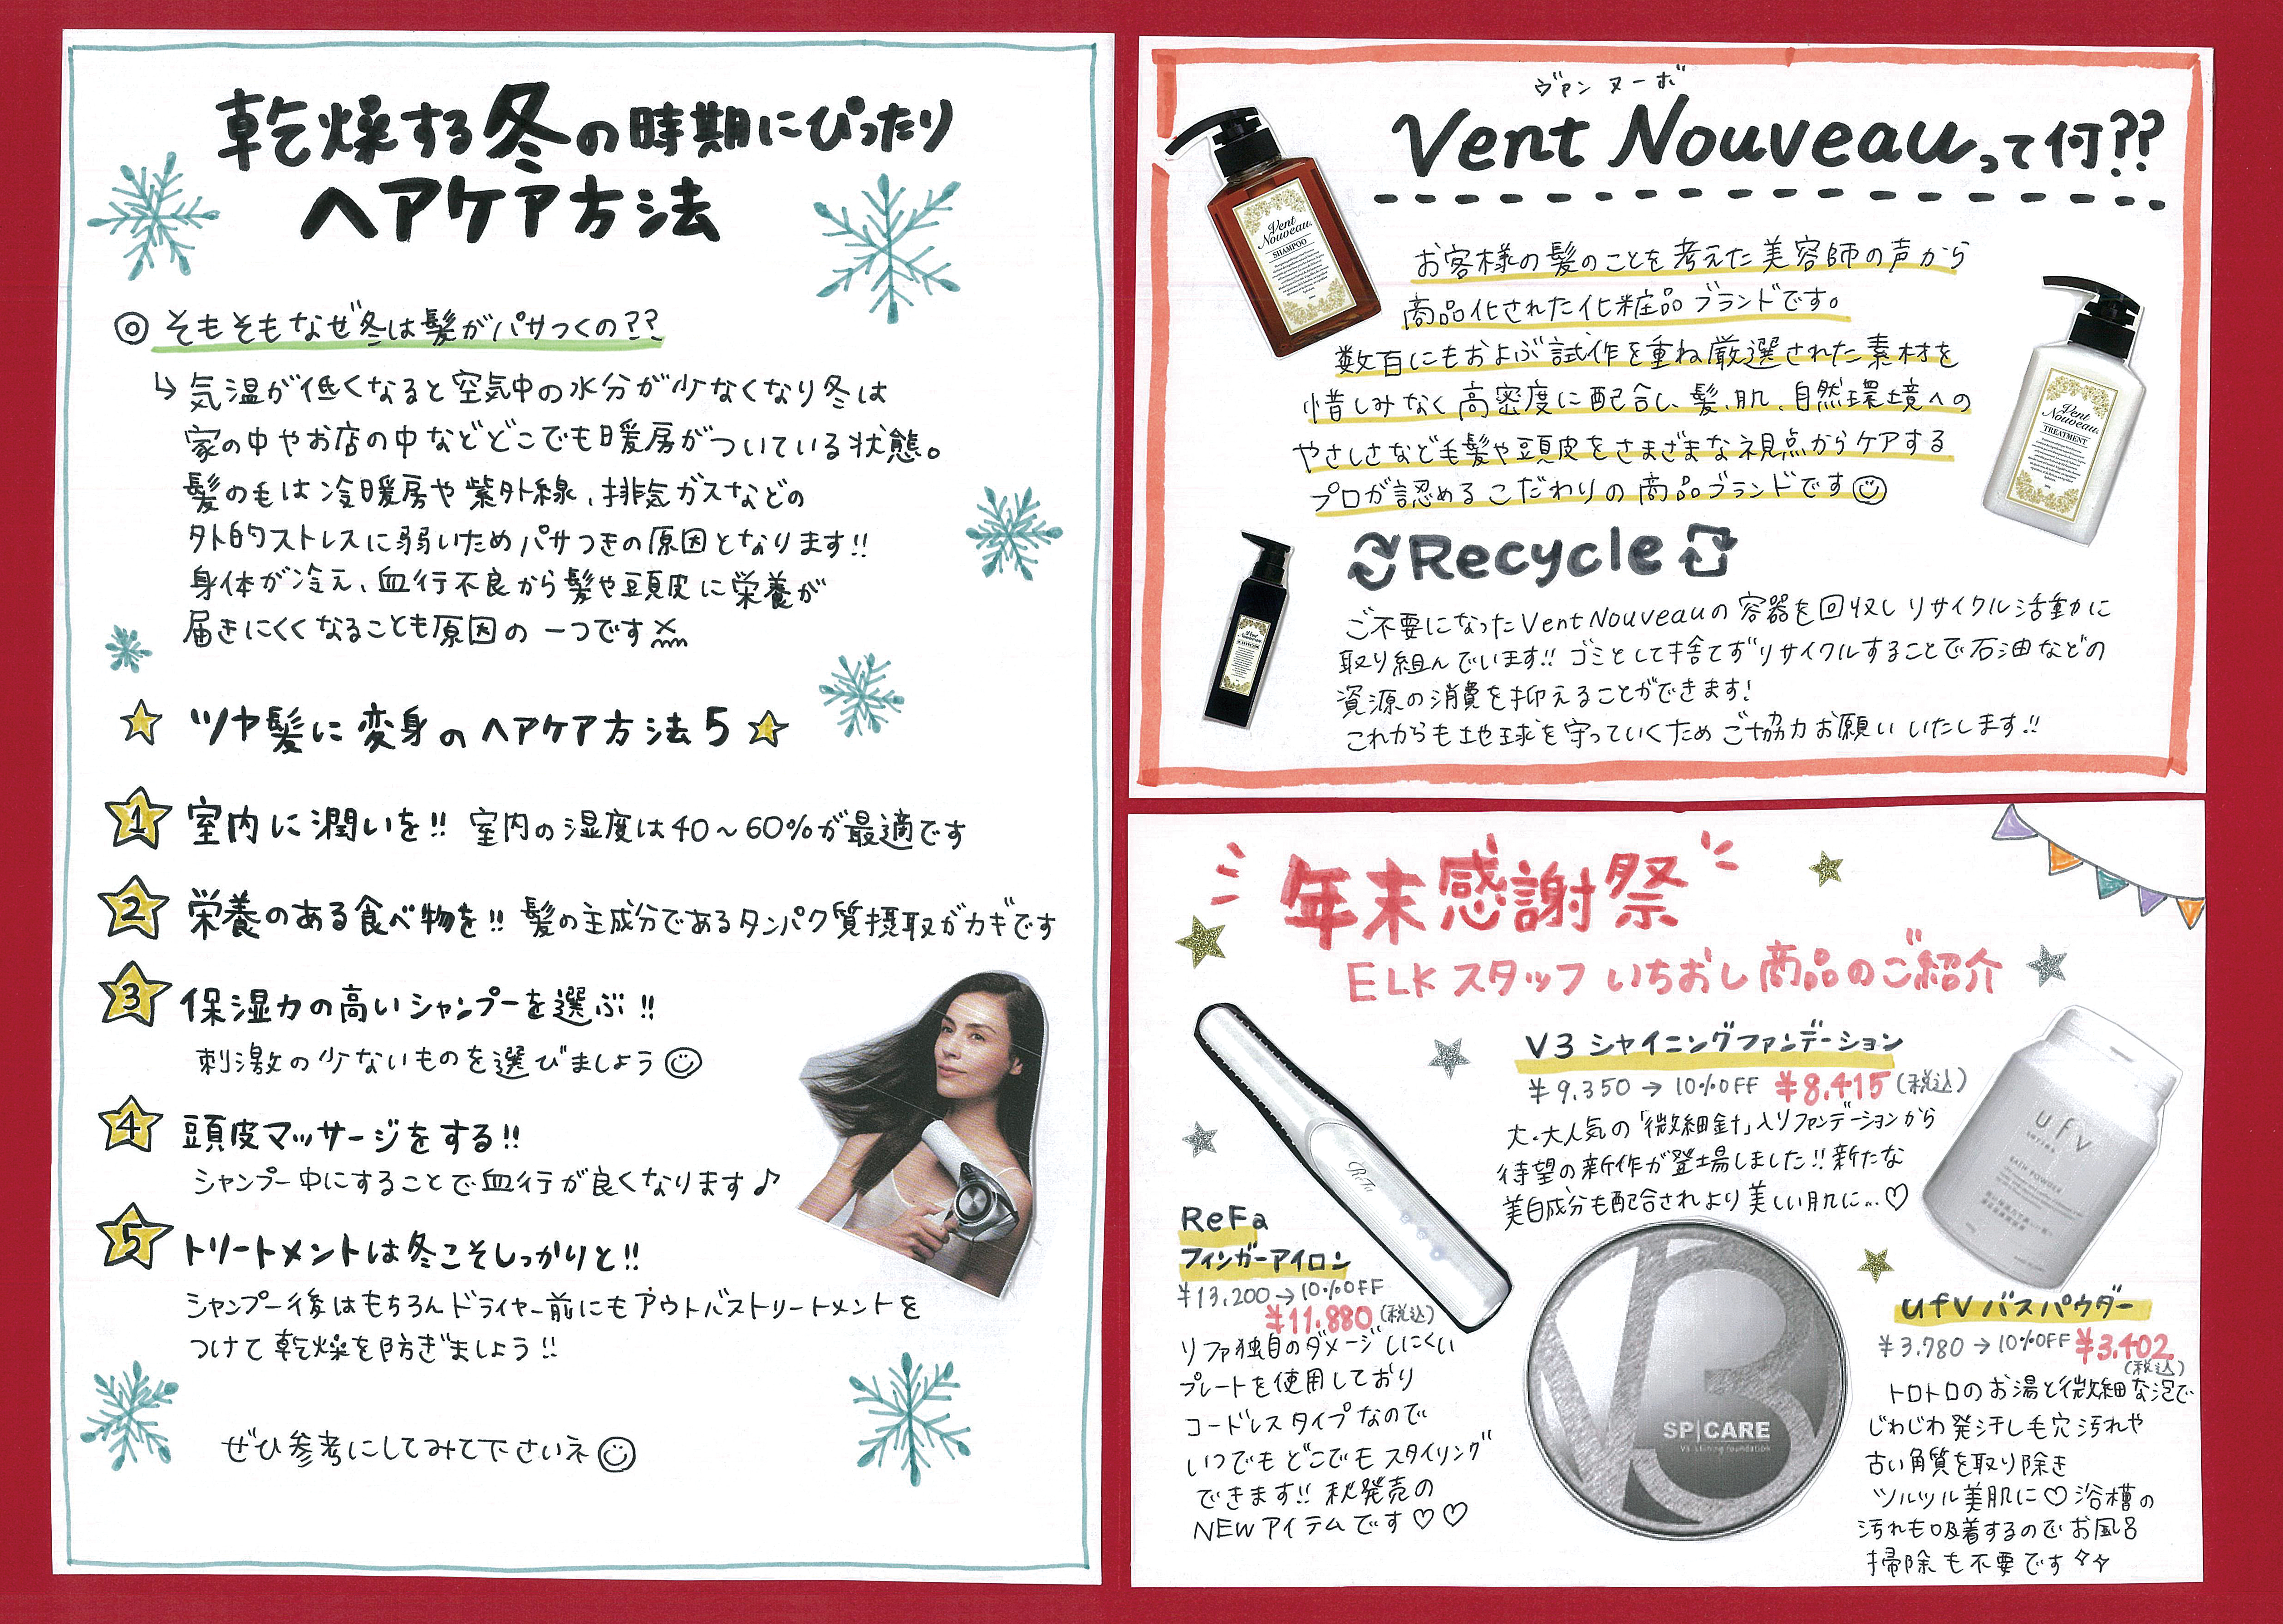 乾燥する冬の時期にぴったり
ヘアケア方法
◎そもそもなぜ冬は髪がパサつくの??
↳気温が低くなると空気中の水分が少なくなり冬は
家の中やお店の中などどこでも暖房がついている状態。
髪の毛は冷暖房や紫外線、排気ガスなどの
外的ストレスに弱いためパサつきの原因となります!!
身体が冷え、血行不良から髪や頭皮に栄養が
届きにくくなることも原因の一つです
☆ツヤ髪に変身のヘアケア方法5☆
1 室内に潤いを!! 室内の湿度は40～60%が最適です
2 栄養のある食べ物を!! 髪の主成分であるタンパク質摂取がカギです
3 保湿力の高いシャンプーを選ぶ!!
刺激の少ないものを選びましょう
4 頭皮マッサージをする!!
シャンプー中にすることで血行が良くなります♪
5 トリートメントは冬こそしっかりと!!
シャンプー後はもちろんドライヤー前にもアウトバストリートメントを
つけて乾燥を防ぎましょう!!
ぜひ参考にしてみて下さいネ
ヴァン ヌーボ
Vent Nouveauって何??
お客様の髪のことを考えた美容師の声から
商品化された化粧品ブランドです。
数百にもおよぶ試作を重ね厳選された素材を
惜しみなく高密度に配合し、髪、肌、自然環境への
やさしさなど毛髪や頭皮をさまざまな視点からケアする
プロが認めるこだわりの商品ブランドです
Vent
Nouveau
SHAMPOO
Vent
Nouveau
TREATMENT
Vent
Nouveau
Recycle
ご不要になったVent Nouveauの容器を回収しリサイクル活動に
取り組んでいます!! ゴミとして捨てずリサイクルすることで石油などの
資源の消費を抑えることができます!
これからも地球を守っていくためご協力お願いいたします!!
年末感謝祭
ELKスタッフいちおし商品のご紹介
V3 シャイニングファンデーション
¥9.350→10%OFF ¥8.415(税込)
大・大人気の「微細針」入りファンデーションから
待望の新作が登場しました!! 新たな
美白成分も配合されより美しい肌に...♡
ReFa
ReFa
フィンガーアイロン
¥13,200→10%OFF
¥11.880(税込)
リファ独自のダメージしにくい
プレートを使用しており
コードレスタイプなので
いつでもどこでもスタイリング
できます!! 秋発売の
NEWアイテムです♡♡
V3
SP|CARE
V3 shining foundation
ufv
BATH POWDER
ufvバスパウダー
¥3.780→10%OFF ¥3.402
(税込)
トロトロのお湯と微細な泡で
じわじわ発汗し毛穴汚れや
古い角質を取り除き
ツルツル美肌に♡浴槽の
汚れも吸着するのでお風呂
掃除も不要です